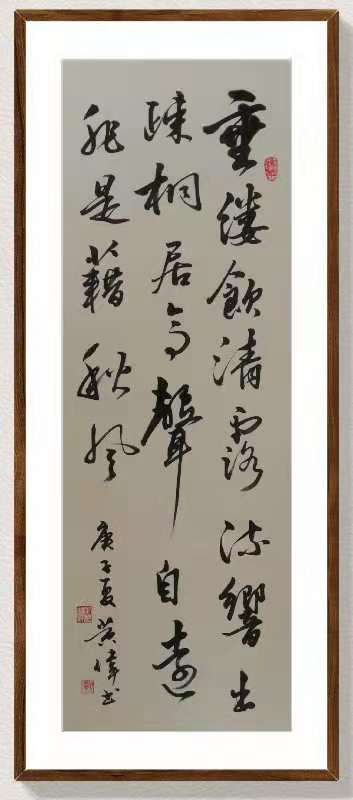 垂緌飲清露流響出
疎桐居高聲自遠
非是藉秋風
庚子夏黄偉书